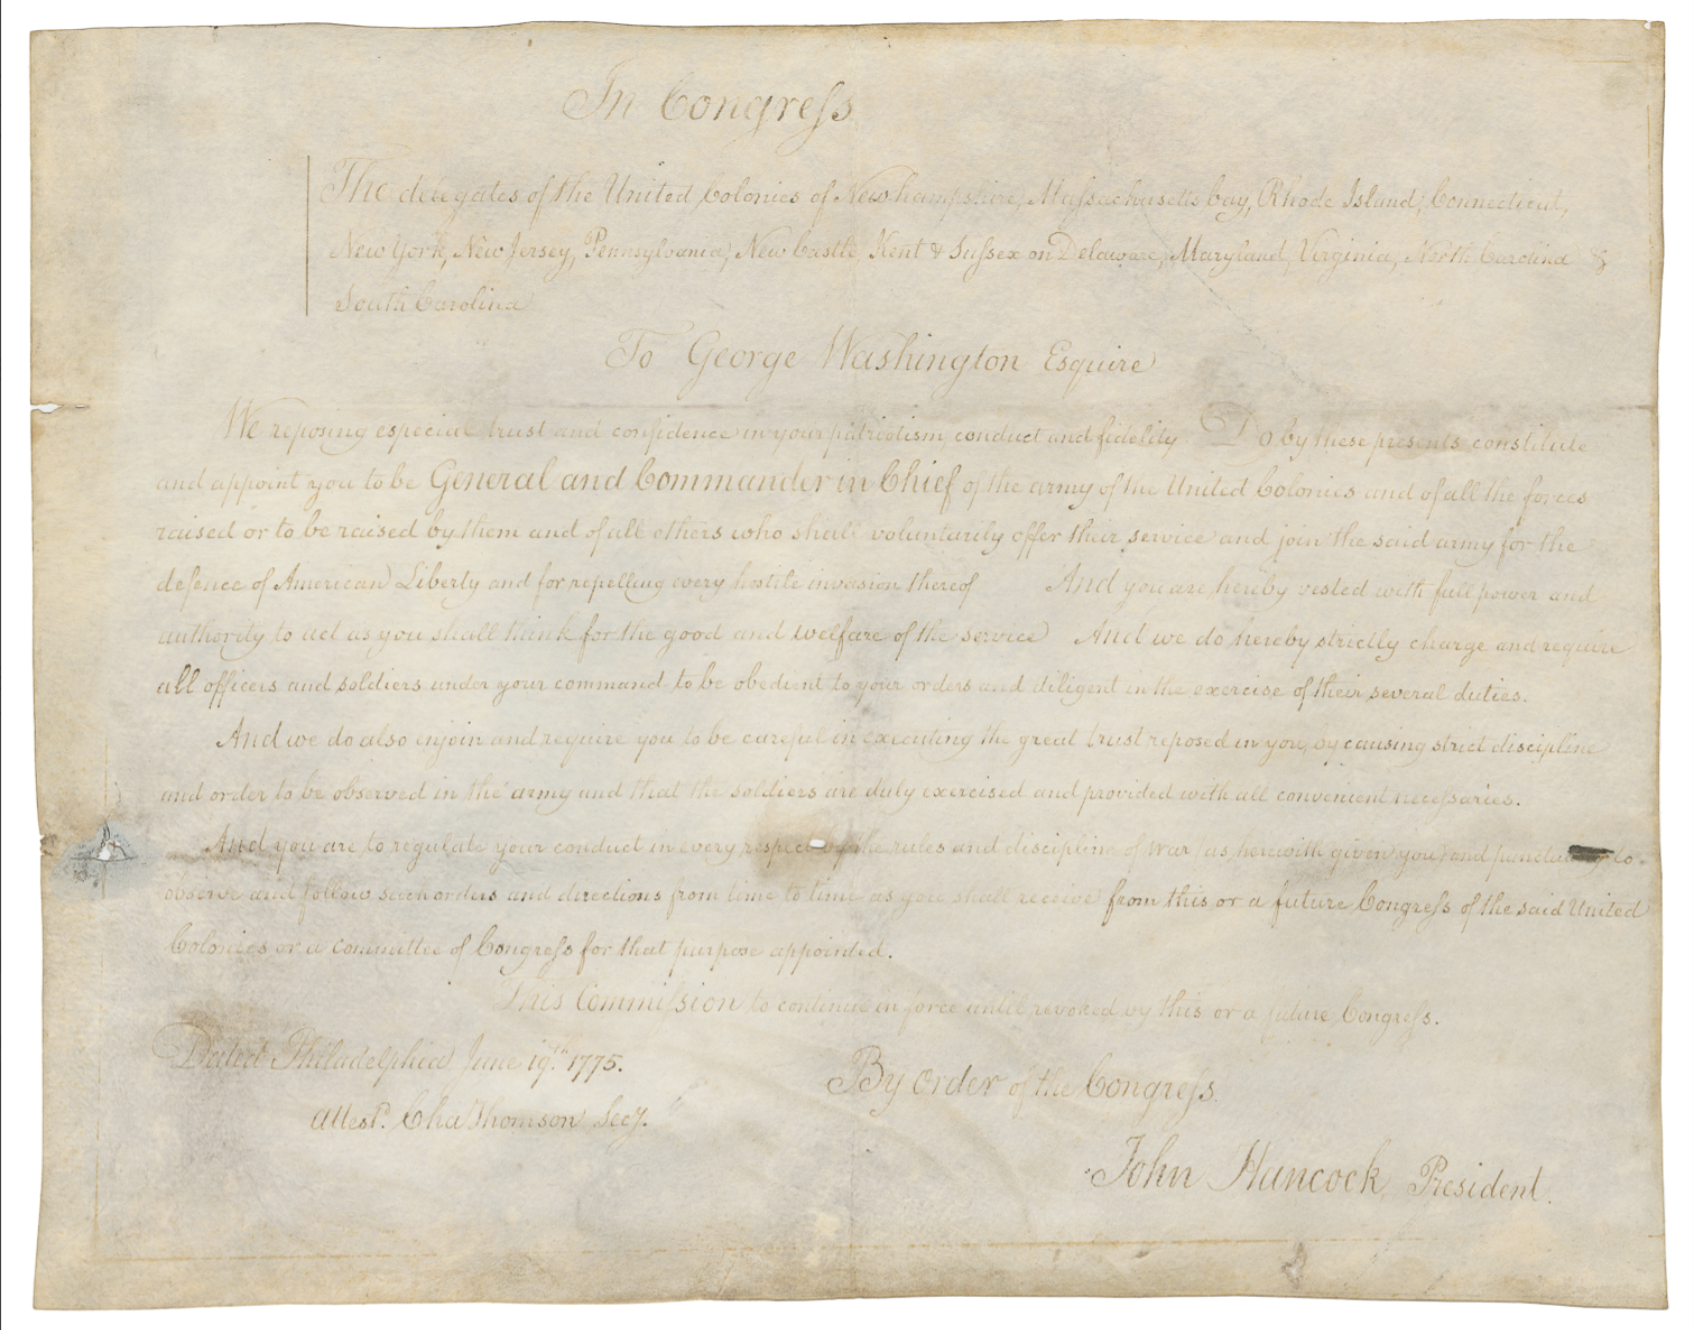 In Congress
The delegates of the United Colonies of New hampshire, Massachusetts bay, Rhode Island, Connecticut,
New York, New Jersey, Pennsylvania, New Castle Kent & Sussex on Delaware, Maryland, Virginia, North Carolina &
South Carolina
To George Washington Esquire
We reposing especial trust and confidence in your patriotism, conduct and fidelity Do by these presents constitute
and appoint you to be General and Commander in Chief of the army of the United Colonies and of all the forces
raised or to be raised by them and of all others who shall voluntarily offer their service and join the said army for the
defence of American Liberty and for repelling every hostile invasion thereof And you are hereby vested with full power and
authority to act as you shall think for the good and welfare of the service And we do hereby strictly charge and require
all officers and soldiers under your command to be obedient to your orders and diligent in the exercise of their several duties.
And we do also enjoin and require you to be careful in executing the great trust reposed in you, by causing strict discipline
and order to be observed in the army and that the soldiers are duly exercised and provided with all convenient necessaries.
And you are to regulate your conduct in every respect by the rules and discipline of war (as herewith given you) and punctually to
observe and follow such orders and directions from time to time as you shall receive from this or a future Congress of the said United
Colonies or a committee of Congress for that purpose appointed.
This Commission to continue in force until revoked by this or a future Congress.
Dated Philadelphia June 19th 1775.
By order of the Congress
Attest. Cha Thomson Secy.
John Hancock, President.